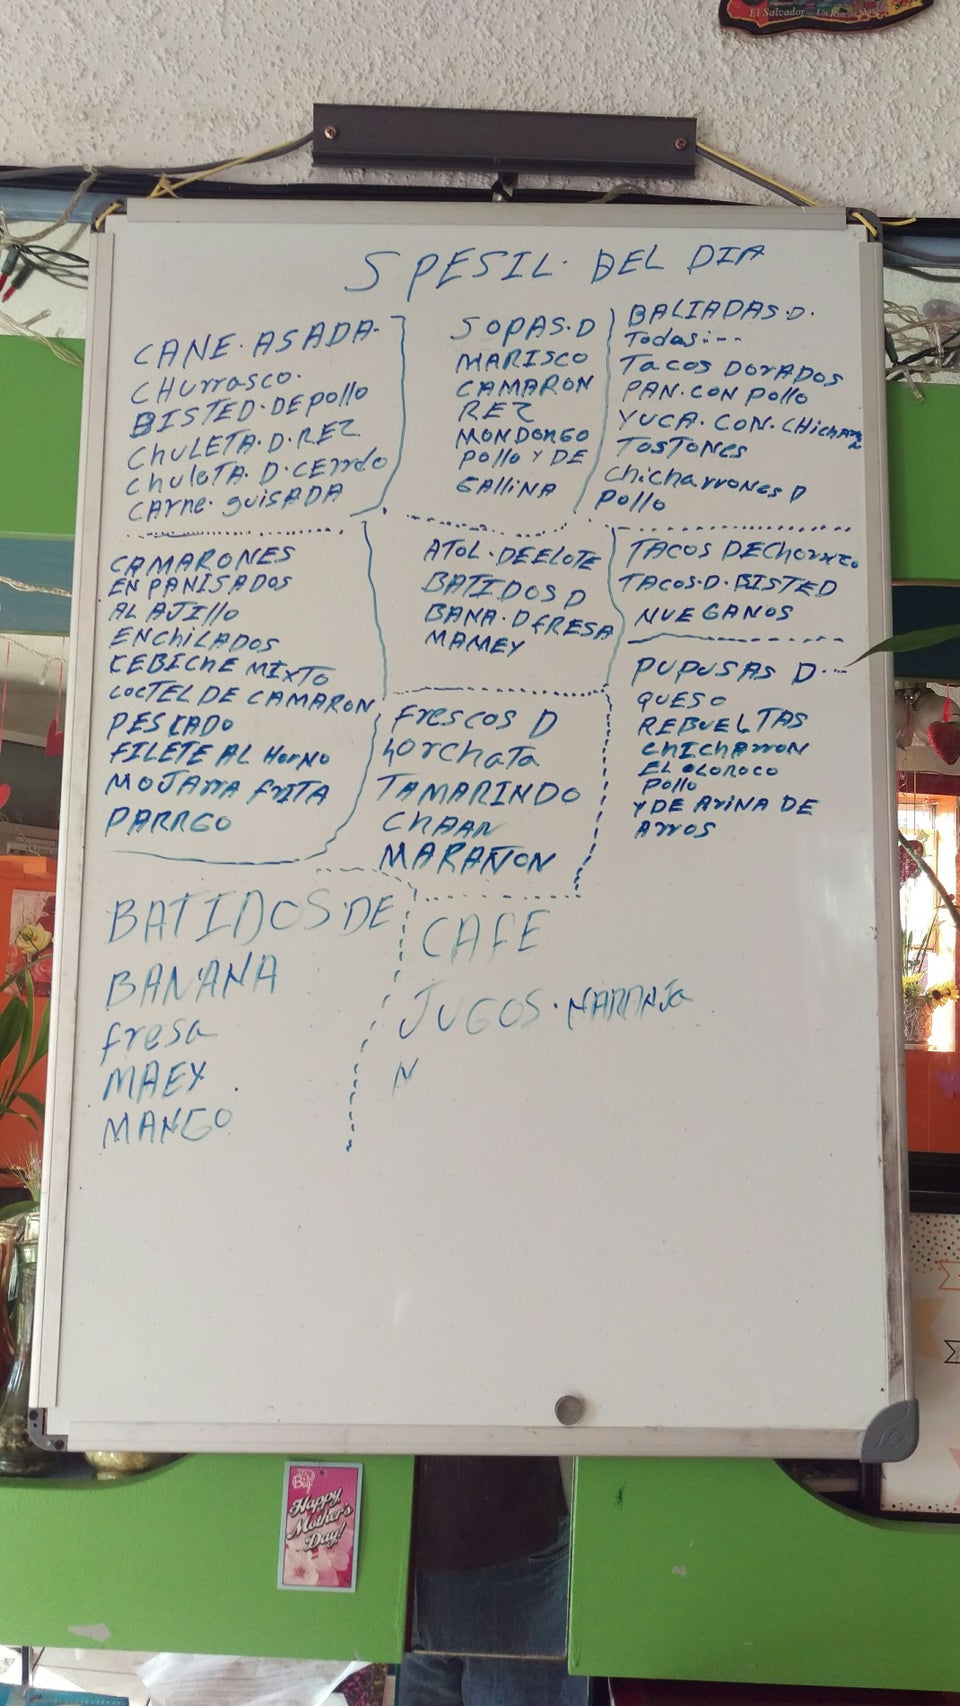 El Salvador Un Rincon Magico
SPESIL. DEL DIA
CANE. ASADA.
CHurrasco.
BISTED. DE pollo
ChuLETA. D. REZ
ChuleTA. D. CErrdo
CArne. guiSADA
SOPAS. D
MARISCO
CAMARON
REZ
MONDONGO
pollo Y DE
GALLiNA
BALIADAS. D.
Todas:--
Tacos DOrADOS
PAN. CON pollo
YUCA. CON. CHicharr
TOSTONES
Chicharrones D
pollo
CAMARONES
EN PANISADOS
AL AJillo
ENChiLADOS
CEBICHE MIXTO
COCTEL DE CAMARON
PESCADO
FILETE AL HOrNO
MOJArrA frITA
PARRGO
ATOL. DE ELOTE
BATIDOS D
BANA. DFRESA
MAMEY
TACOS DEChorizo
TACOS. D. BISTED
NUEGANOS
frescos D
horchata
TAMARINDO
CHAAN
MARAÑON
PUPUSAS D...
QUESO
REBUELTAS
CHICHArroN
EL OLOROCO
pollo
Y DE ArINA DE
Arros
BATIDOS. DE
BANANA
fresa
MAEY
MANGO
CAFE
JUGOS. NARANJa
N
Happy
Mother's
Day!